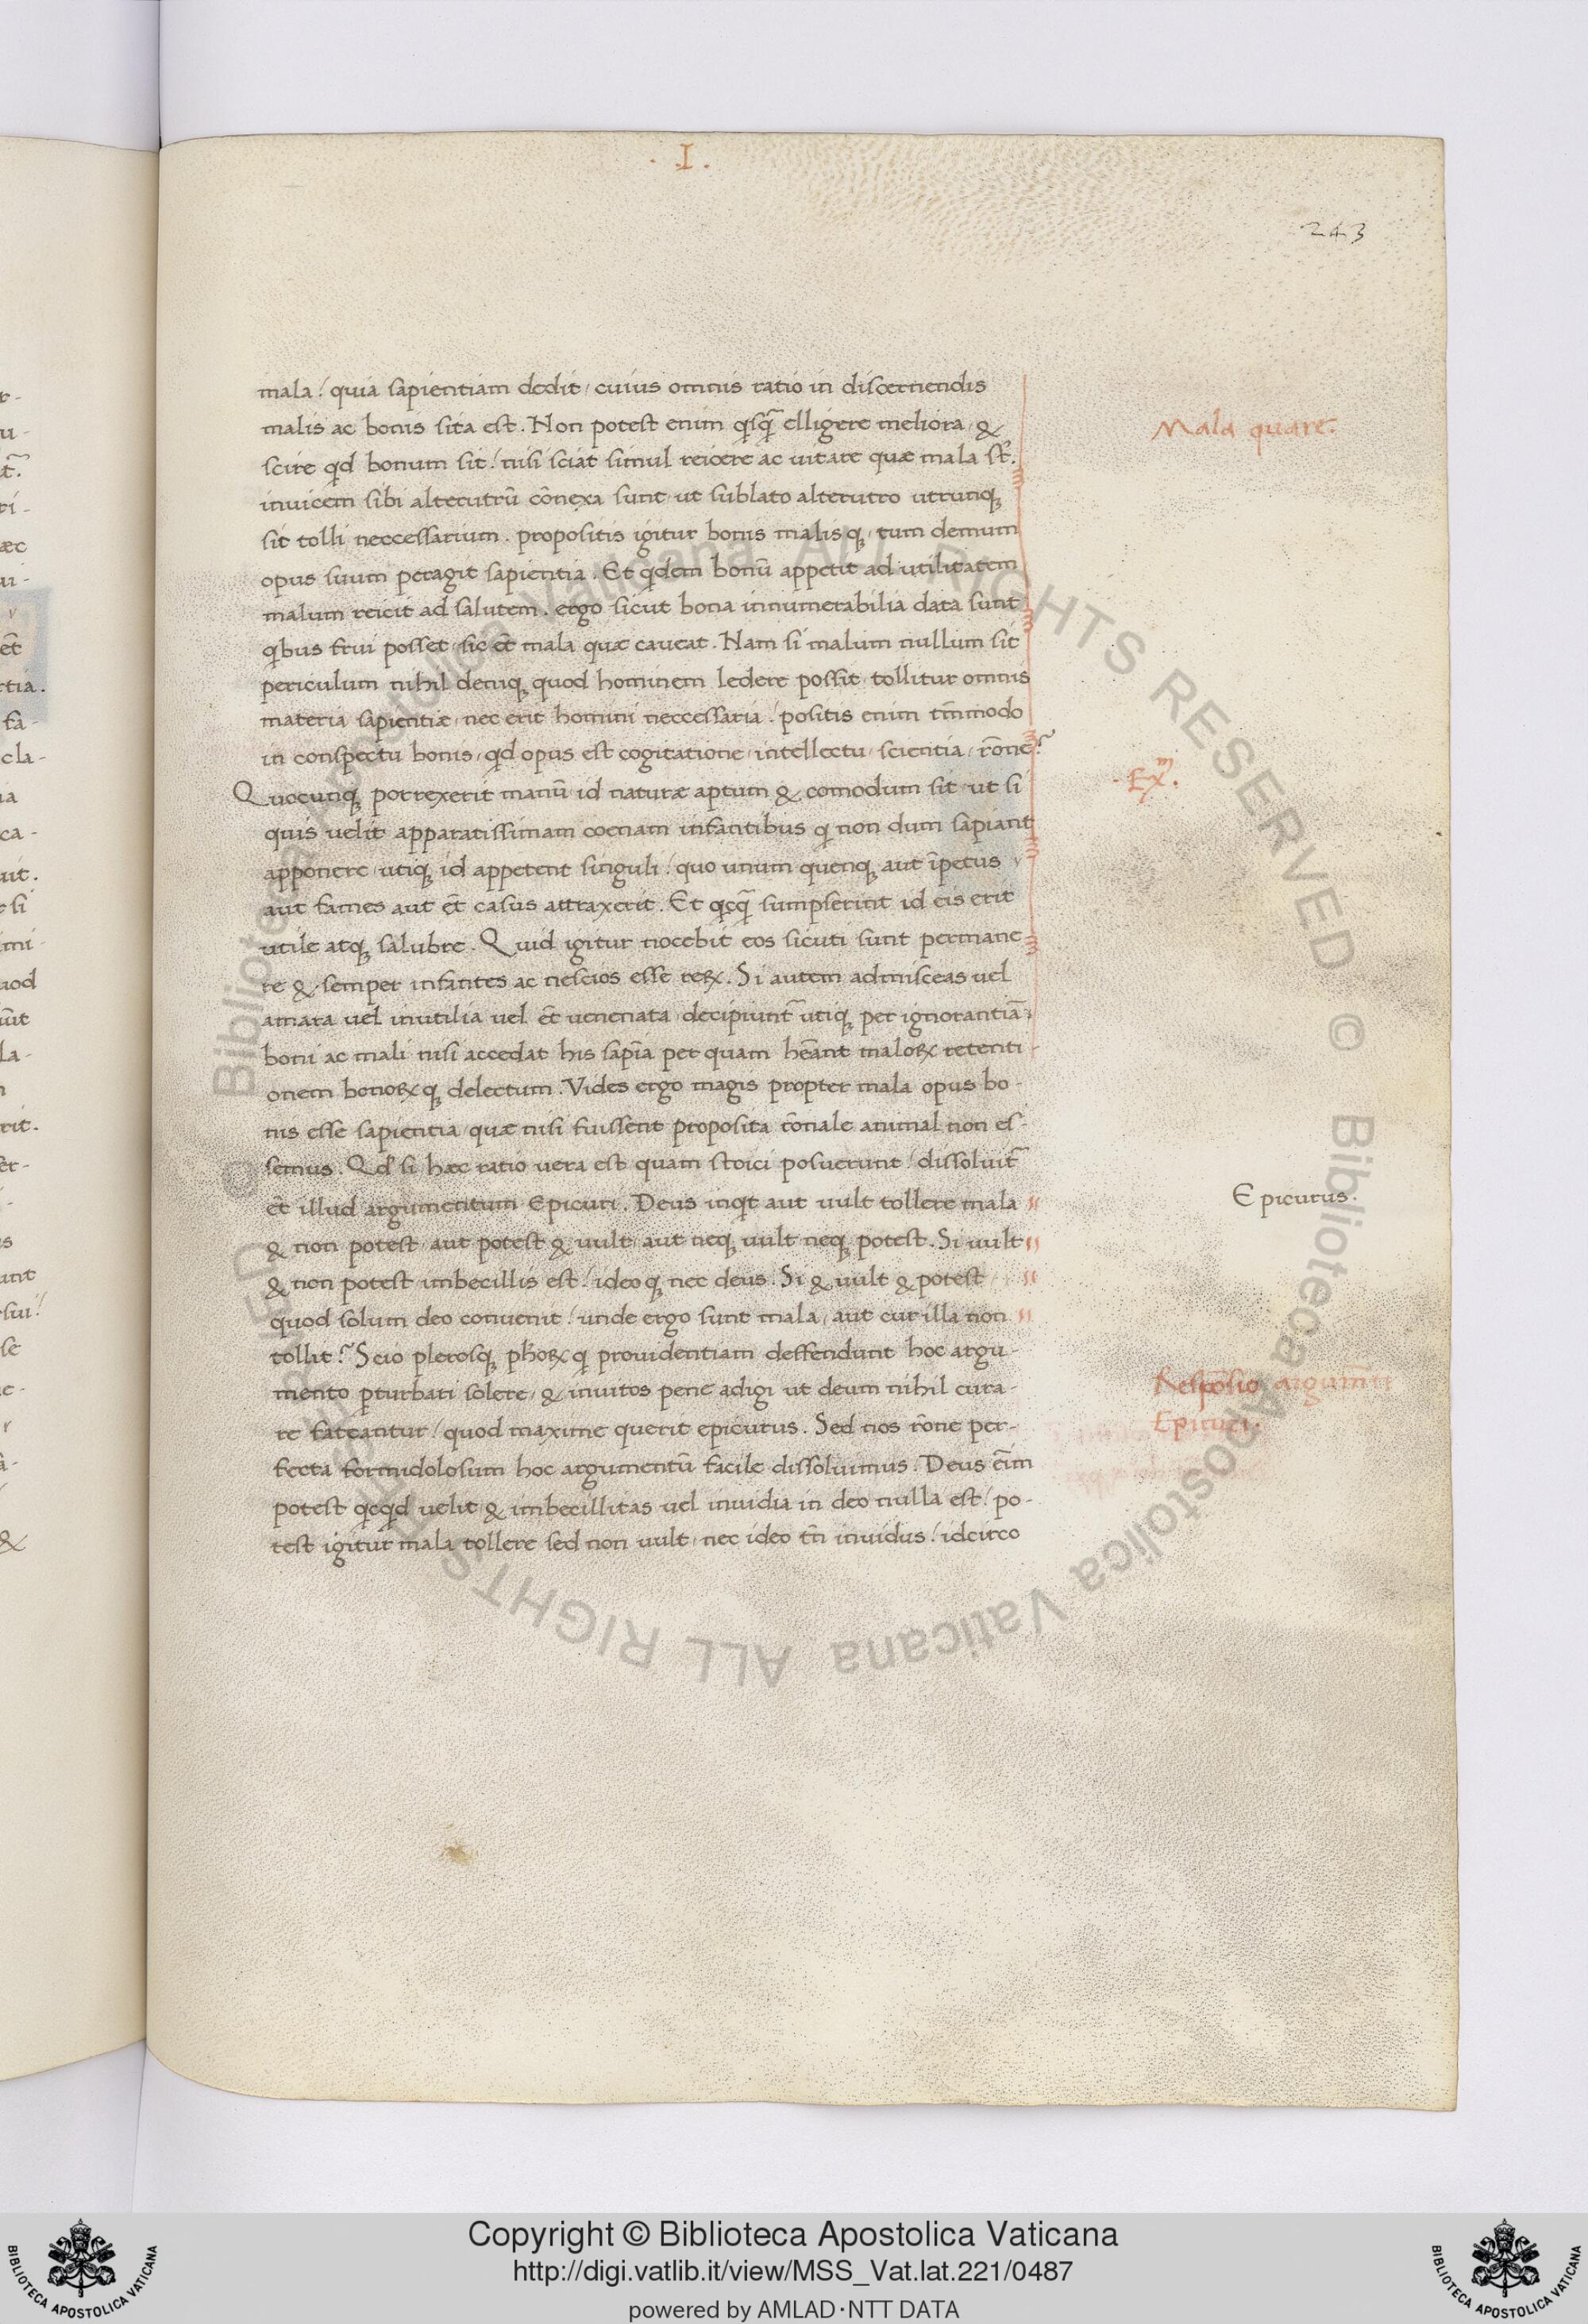 .I.
243
mala! quia sapientiam dedit, cuius omnis ratio in discernendis
malis ac bonis sita est. Non potest enim qisq̃ elligere meliora, &
scire qd bonum sit! nisi sciat simul reicere ac uitare quæ mala st̃.
inuicem sibi alterutrũ cõnexa sunt, ut sublato alterutro utrunq;
sit tolli neccessarium. propositis igitur bonis malis q;, tum demum
opus suum peragit sapientia. Et qidem bonũ appetit ad utilitatem
malum reicit ad salutem. ergo sicut bona innumerabilia data sunt
qibus frui posset, sic et̃ mala quæ caueat. Nam si malum nullum sit
periculum nihil deniq; quod hominem ledere possit, tollitur omnis
materia sapientiæ, nec erit homini neccessaria! positis enim tm̃modo
in conspectu bonis, qd opus est cogitatione, intellectu, scientia, rõne?
Quocunq; porrexerit manũ, id naturæ aptum & comodum sit, ut si
quis uelit apparatissimam coenam infantibus qi non dum sapiant
apponere, utiq; id appetent singuli! quo unum quenq; aut ĩpetus
aut fames aut et̃ casus attraxerit. Et qicq̃ sumpserint id eis erit
utile atq; salubre. Quid igitur nocebit eos sicuti sunt permane
re & semper infantes ac nescios esse rerꝝ. Si autem admisceas uel
amara uel inutilia uel et̃ uenenata, decipiunt̃ utiq; per ignorantiã
boni ac mali nisi accedat his sapĩa per quam hẽant malorꝝ retenti-
onem bonorꝝ q; delectum. Vides ergo magis propter mala opus bo-
nis esse sapientia, quæ nisi fuissent proposita rõnale animal non es-
semus. Qd si hæc ratio uera est quam stoici posuerunt! dissoluit̃
et̃ illud argumentum Epicuri. Deus inqit aut uult tollere mala
& non potest, aut potest & uult, aut neq; uult neq; potest. Si uult
& non potest imbecillis est! ideo q; nec deus. Si & uult & potest
quod solum deo conuenit! unde ergo sunt mala, aut cur illa non
tollit? Scio plerosq; ph̃orꝝ qi prouidentiam deffendunt hoc argu-
mento pturbati solere, & inuitos pene adigi ut deum nihil cura-
re fateantur! quod maxime querit epicurus. Sed nos rõne per-
fecta formidolosum hoc argumentũ facile dissoluimus. Deus eim̃
potest qicqid uelit & imbecillitas uel inuidia in deo nulla est! po-
test igitur mala tollere sed non uult, nec ideo tñ inuidus! idcirco
Mala quare.
.Exᵐ.
Epicurus.
Respõsio argumẽti
Epicuri.
Copyright © Biblioteca Apostolica Vaticana
http://digi.vatlib.it/view/MSS_Vat.lat.221/0487
powered by AMLAD·NTT DATA
BIBLIOTECA APOSTOLICA VATICANA
BIBLIOTECA APOSTOLICA VATICANA
© Biblioteca Apostolica Vaticana ALL RIGHTS RESERVED © Biblioteca Apostolica Vaticana ALL RIGHTS RESERVED